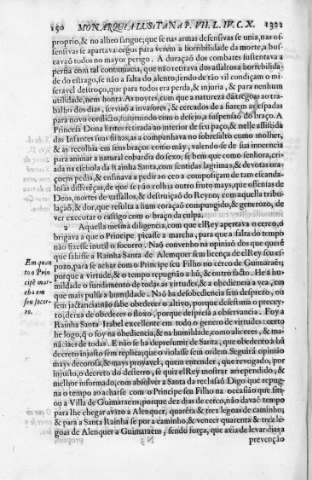 190 MONARQUIA LUSITANA P. VII. L. IV. C. X. 1322
proprio, & no alheo sangue; que se nas armas defensivas se unia, nas of-
fensivas se apartava: cegos para verem a horribilidade da morte, a bus-
cavaõ todos no mayor perigo. A duraçaõ dos combates sustentava a
perfia com tal contumacia, que não retirava dos assaltos a horribilidade
do estrago, se não a falta do alento, sendo de taõ vil condiçam o mi-
seravel destroço, que para todos era perda, & injuria, & para nenhum
utilidade, nem honra. As noytes, com que a natureza
dos dias, servião a invasores, & cercados de a
para novo conflicto, com o desejo, a suspensão do braço. A
Princesa Dona Brites retirada no interior de seu paço, &
das Infantes seus filhos, as acompanhava no sobresalto como mulher,
& as recolhia em seus braços como mãy, valendo-se de sua innocencia
para animar a natural cobardia do sexo; se bem que como senhora, cri-
ada na eschola da Rainha Santa, com sentidas lagrimas, & devotas ora-
çoens pedia, & ensinava a pedir ao ceo a composiçam de tam escanda-
losas differenças, de que se não colhia outro fruto mays, que offensas de
Deos, mortes de vassallos, & destruiçaõ do Reyno; com aquella tribu-
laçaõ, & dor, que resulta a hum coraçaõ compungido, & generoso, de
ver executar o castigo com o braço da culpa.
2 Aquella mesma diligencia, com que elRey apertava o cerco, o-
brigava a que o Principe picasse a marcha, para que a falta do tempo
não fizesse inutil o soccorro. Naõ convenho na opiniaõ dos que querem
que sahisse a Rainha Santa de Alenquer sem licença de elRey seu es-
pozo, para se achar com o Principe seu Filho no cerco de Guimaraẽs;
porque a virtude, & o tempo repugnão a hũ, & outro facto. He a hu-
mildade o fundamento de todas as virtudes, & a obediencia a voz, com
que mais pulsa a humildade. Naõ ha desobediencia sem desprezo, com
que jactancioso não sabe obedecer o altivo, porque desestima o precey-
to, deixa de obedecer o floxo, porque despreza a observancia. Foy a
Rainha Santa Isabel excellente em todo o genero de virtudes: certo
he logo, q o foy na obediencia, & na humildade, como alicerce, & mu-
niciaçaõ de todas. E não se ha de presumir de Santa, que obedecesse a hũ
decreto injusto sem replica, que o violasse sem ordem. Seguirá opiniaõ
mays decorosa, & mays provavel, quem entender, que revogado, por
injusto, o decreto do desterro, se quiz elRey mostrar arrependido, &
melhor informado, com absolver a Santa da reclusaõ. Digo que repug-
na o tempo a achar-se com o Principe seu Filho na
ou a Villa de Guimaraẽs, porque dez dias de cerco, não davaõ tempo
para lhe chegar avizo a Alenquer, quarẽta & tres legoas de caminho;
& para a Santa Rainha se por a caminho, & vencer quarenta & tres le-
goas de Alenquer a Guimaraẽs, sendo força, que avia de levar dias a
prevenção
Em quan
to o Prin
cipe mar-
cha em
seu socor-
ro.